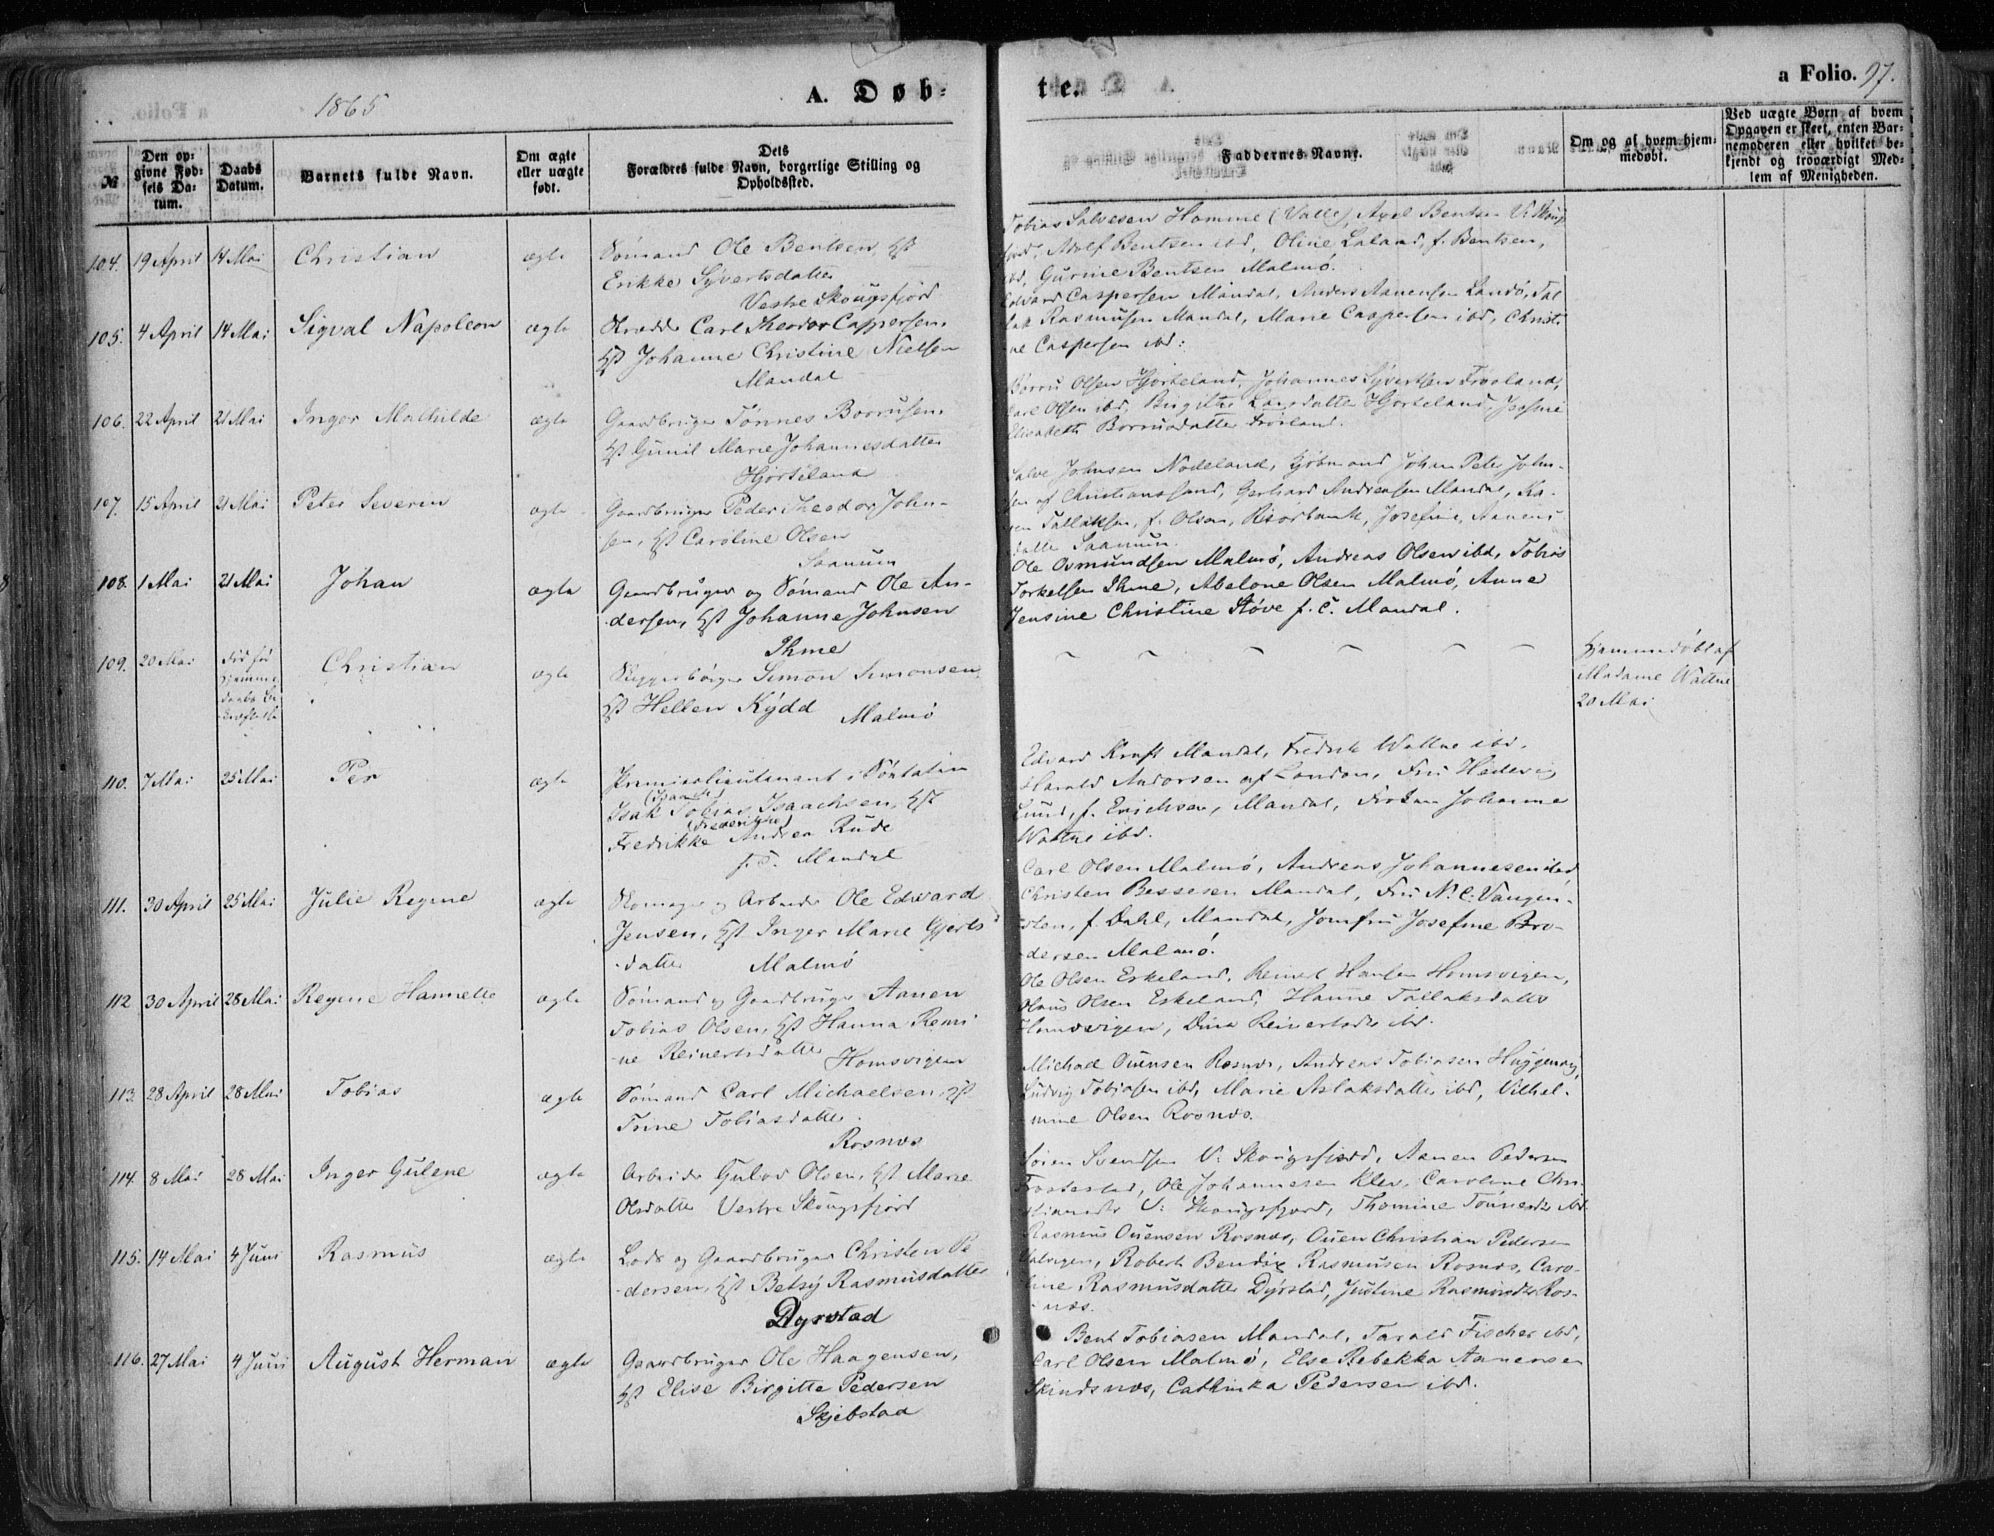 1865
A. Døb-
№
Den opgivne Fødsels Datum.
Daabs Datum.
Barnets fulde Navn.
Om ægte eller uægte født.
Dets Forældres fulde Navn, borgerlige Stilling og Opholdssted.
104. 19 April 14 Mai Christian ægte Sømand Ole Bentsen, Hst
Erikke Syvertsdatter
Vestre Skougsfjord
105. 4 April 14 Mai Sigval Napoleon ægte Carl Theodor Caspersen,
Hst Johanne Christine Nielsen
Mandal
106. 22 April 21 Mai Inger Mathilde ægte Gaardbruger Tønnes Borrusen,
Hst Gunil Marie Johannesdatter
Hjorteland
107. 15 April 21 Mai Peter Severin ægte Gaardbruger Peder Theodor John-
sen, Hst Caroline Olsen
Saanum
108. 1 Mai 21 Mai Johan ægte Gaardbruger og Sømand Ole An-
dersen, Hst Johanne Johnsen
Ihme
109. 20 Mai Christian ægte Simon Simonsen,
Hst Hellen Kydd Malmø
110. 7 Mai 25 Mai Per ægte Premierlieutenant i
(Isaach)
Isak Tobias Isaachsen, Hst
(Frederikke)
Fredrikke Andrea Rude
p. t. Mandal
111. 30 April 25 Mai Julie Regine ægte og Arbeider Ole Edward
Jensen, Hst Inger Marie Gjerts-
datter Malmø
112. 30 April 28 Mai Regine Hannette ægte Sømand og Gaardbruger Aanen
Tobias Olsen, Hst Hanna Remi-
ne Reinertsdatter Homsvigen
113. 28 April 28 Mai Tobias ægte Sømand Carl Michaelsen, Hst
Trine Tobiasdatter
Rosnæs
114. 8 Mai 28 Mai Inger Gulene ægte Arbeider Gulov Olsen, Hst Marie
Olsdatter Vestre Skougsfjord
115. 14 Mai 4 Juni Rasmus ægte Lods og Gaardbruger Christen Pe-
dersen, Hst Betsy Rasmusdatter
Dyrstad
116. 27 Mai 4 Juni August Herman ægte Gaardbruger Ole Haagensen,
Hst Elise Birgitte Pedersen
Skjebstad
te.
a Folio. 97.
Faddernes Navne.
Om og af hvem hjemmedøbt.
Ved uægte Børn af hvem Opgaven er skeet, enten Barnemoderen eller hvilket bekjendt og troværdigt Medlem af Menigheden.
Tobias Salvesen Homme (Valle), Axel Bentsen V. Skougs-
fjord, Adolf Bentsen ibd, Oline Laland, f. Bentsen,
ibd, Gurine Bentsen Malmø.
Edvard Caspersen Mandal, Anders Aanensen Landø, Tal-
lak Rasmusen Mandal, Marie Caspersen ibd, Christi-
ne Caspersen ibd:
Borru Olsen Hjorteland, Johannes Syvertsen Frøoland,
Carl Olsen ibd, Birgitte Larsdatter Hjorteland,
Elisabeth Borrusdatter
Salve Johnsen Nodeland, Kjøbmand Johan Peter John-
sen af Christianssand, Gerhard Andreasen Mandal, Ka-
ren Tallaksen, f. Olsen, Risørbank, Josefine Aanens-
datter Saanum.
Ole Osmundsen Malmø, Andreas Olsen ibd, Tobias
Torkelsen Ihme, Abelone Olsen Malmø, Anne
Jensine Christine Støve f. C. Mandal.
Hjemmedøbt af
Madame Wattne
20 Mai
Edvard Kraft Mandal, Fredrik Wattne ibd.
Harald Andersen af London, Fru Hedevig
Lund, f. Erichsen, Mandal, Frøken Johanne
Wattne ibd.
Carl Olsen Malmø, Andreas Johannesen ibd
Christen Bessesen Mandal, Fru N. C. Vangen-
sten, f. Dahl, Mandal, Jomfru Josefine Bro-
dersen Malmø.
Ole Olsen Eskeland, Reinert Hansen Homsvigen,
Olaus Olsen Eskeland, Hanne Tallaksdatter
Homsvigen, Dina Reinertsdtr ibd.
Michael Ouensen Rosnæs, Andreas Tobiasen
Ludvig Tobiasen ibd, Marie Aslaksdatter ibd, Vilhel-
mine Olsen Rosnæs.
Søren Svendsen V. Skougsfjord, Aanen Pedersen
Frostestad, Ole Johannesen Klev, Caroline Chri-
stiansdtr V. Skougsfjord, Thomine Tønnesdtr ibd.
Rasmus Ouensen Rosnæs, Ouen Christian Pedersen
Robert Bendix Rasmusen Rosnæs, Caro-
line Rasmusdatter Dyrstad, Justine Rasmusdtr Ros-
næs.
Bent Tobiasen Mandal, Tarald Fischer ibd,
Carl Olsen Malmø, Else Rebekka Aanensen
Skindsnæs, Cathinka Pedersen ibd.